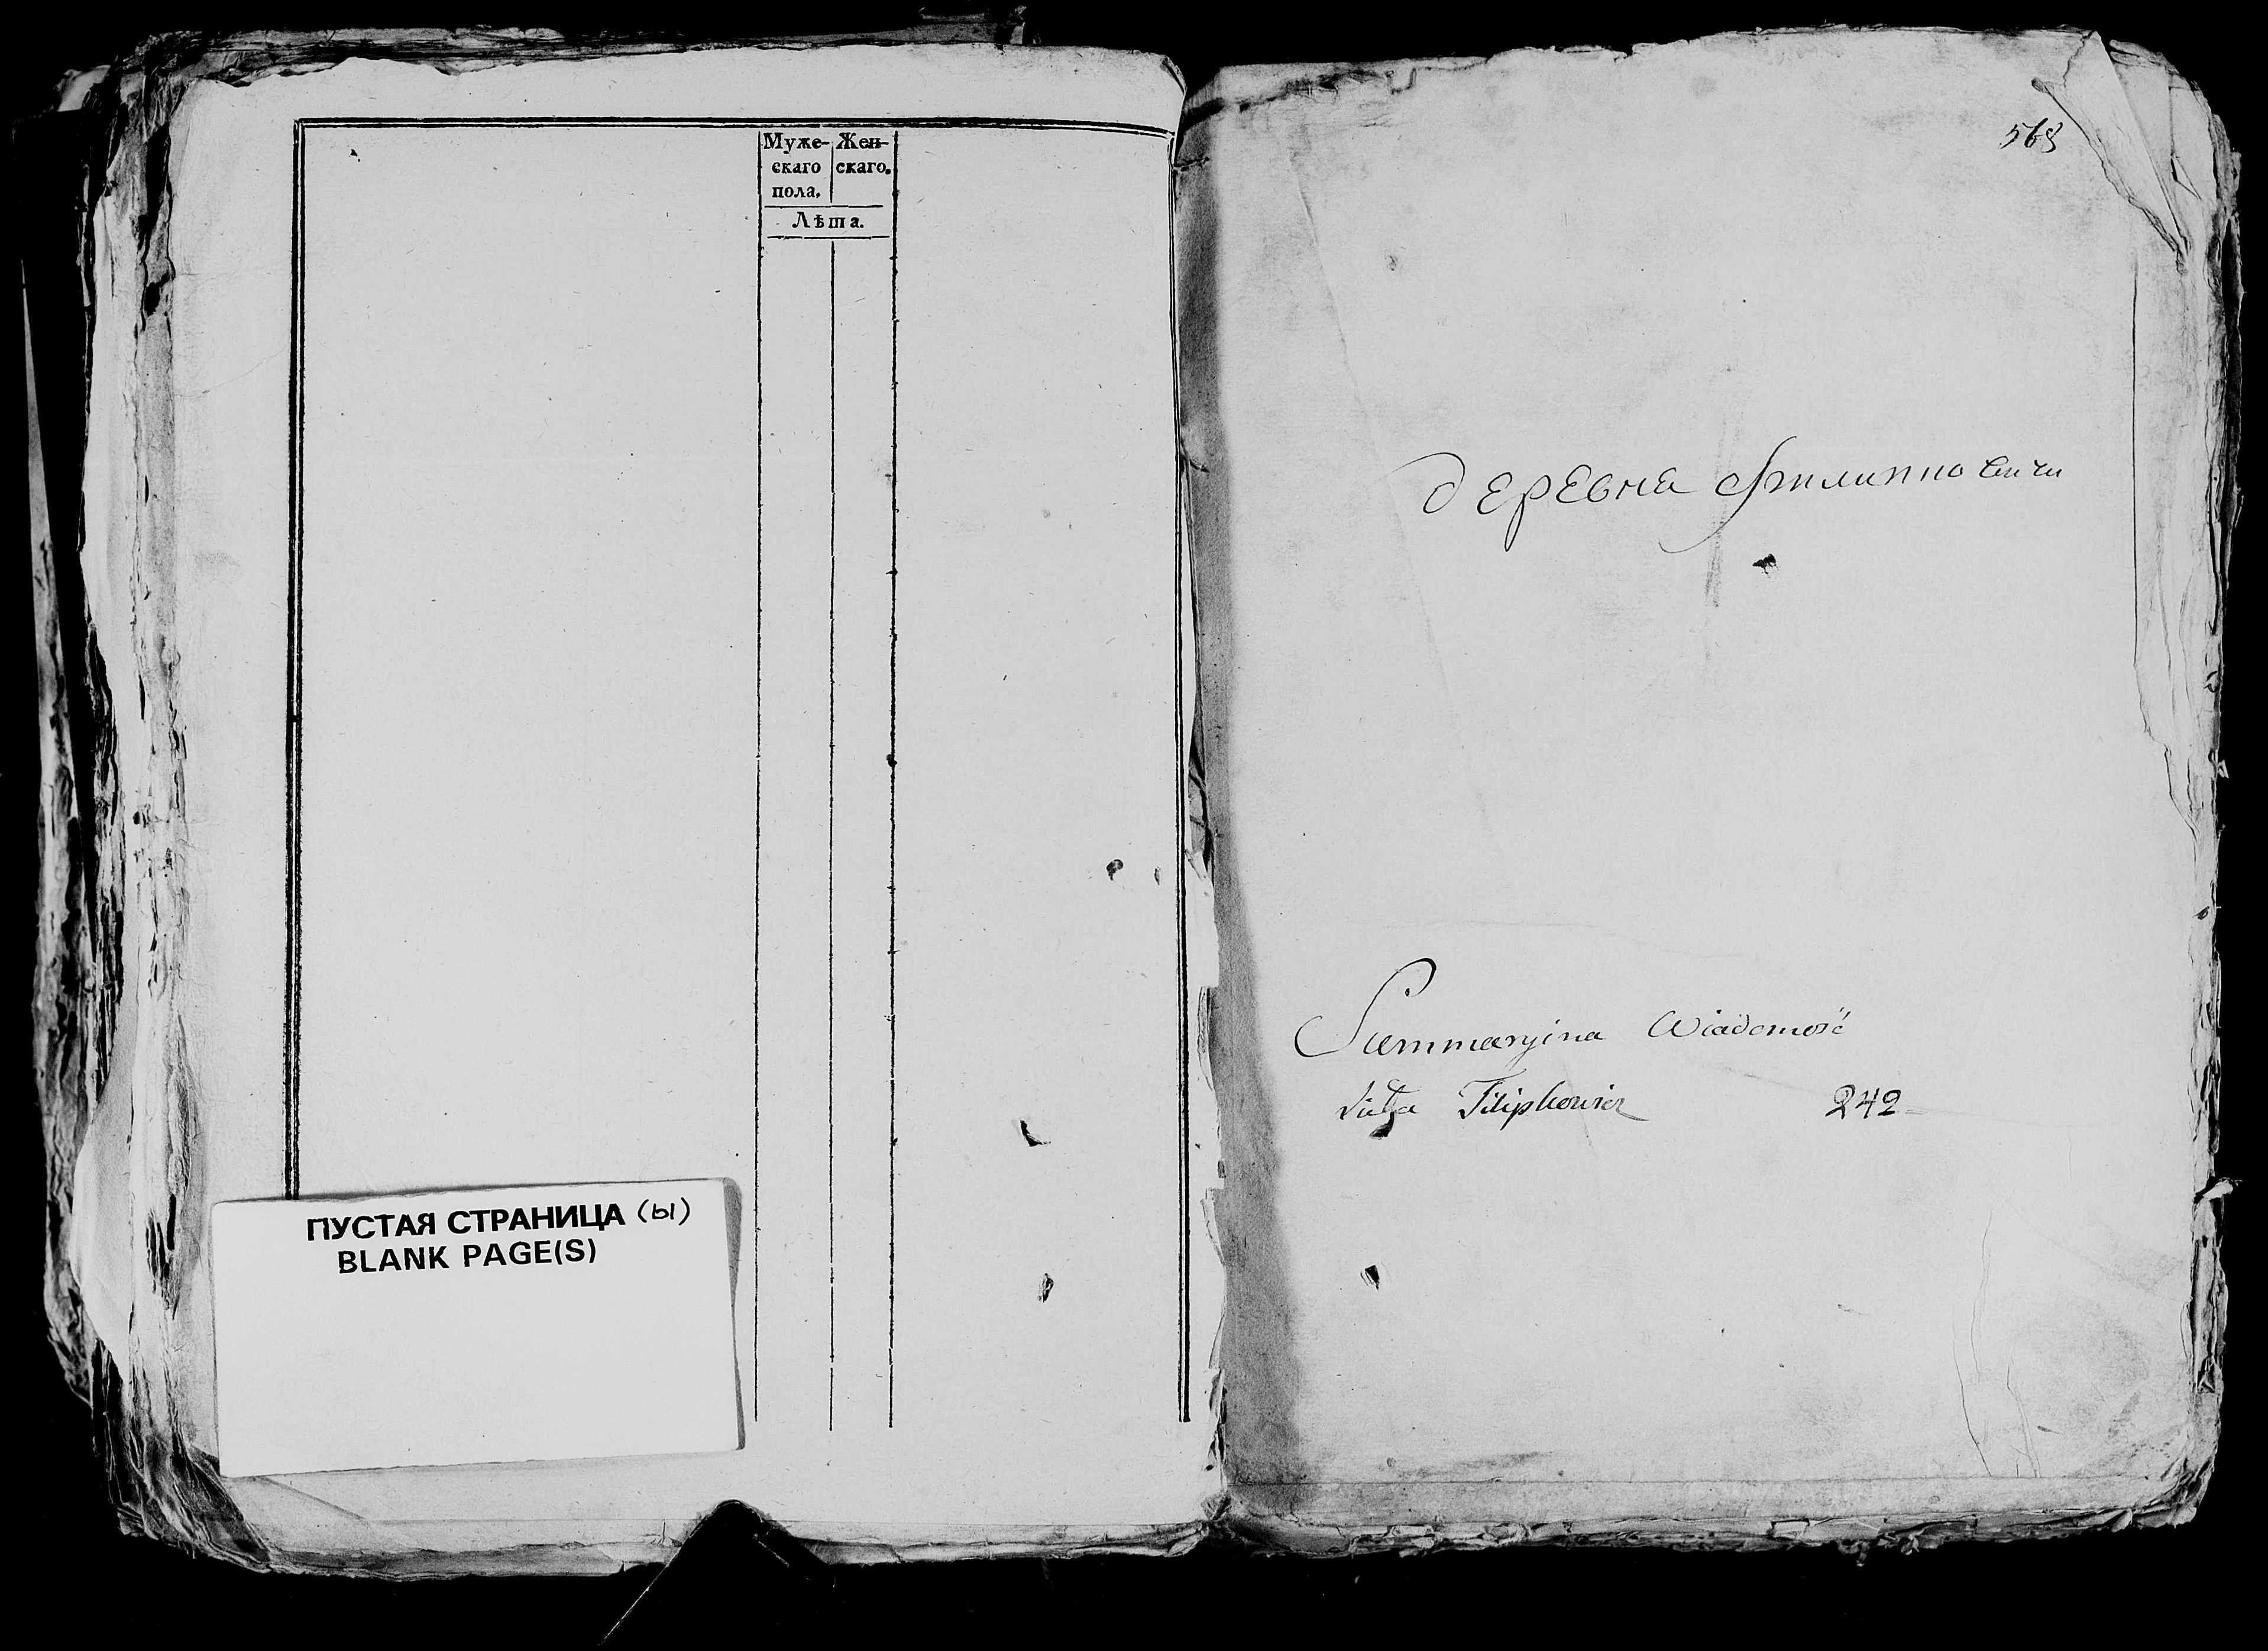 Муже- Жен-
скаго скаго.
пола.
Лѣта.
ПУСТАЯ СТРАНИЦА (ы)
BLANK PAGE(S)
568
деревня Филиппо вичи
Summaryina Wiadomość
Filipkowicz 242